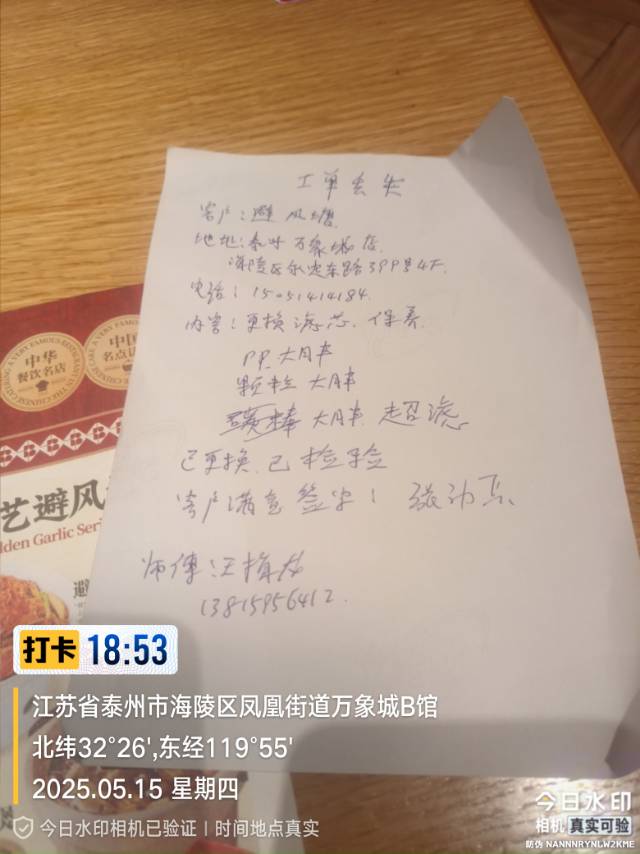 工单丢失
客户:避风塘
地址:泰州万象城店
海陵区永定东路399号4F
电话:15051414184
内容:更换滤芯、保养
PP大胖
颗粒大胖
碳棒大胖 超滤
已更换 已检验
客户满意签字:
师傅:王
13815956412
中华
餐饮名店
中国
名点
艺避风
lden Garlic Seri
避
打卡 18:53
江苏省泰州市海陵区凤凰街道万象城B馆
北纬32°26',东经119°55'
2025.05.15 星期四
今日水印相机已验证 | 时间地点真实
今日水印
相机 真实可验
防伪 NANNNRYNLW2KME